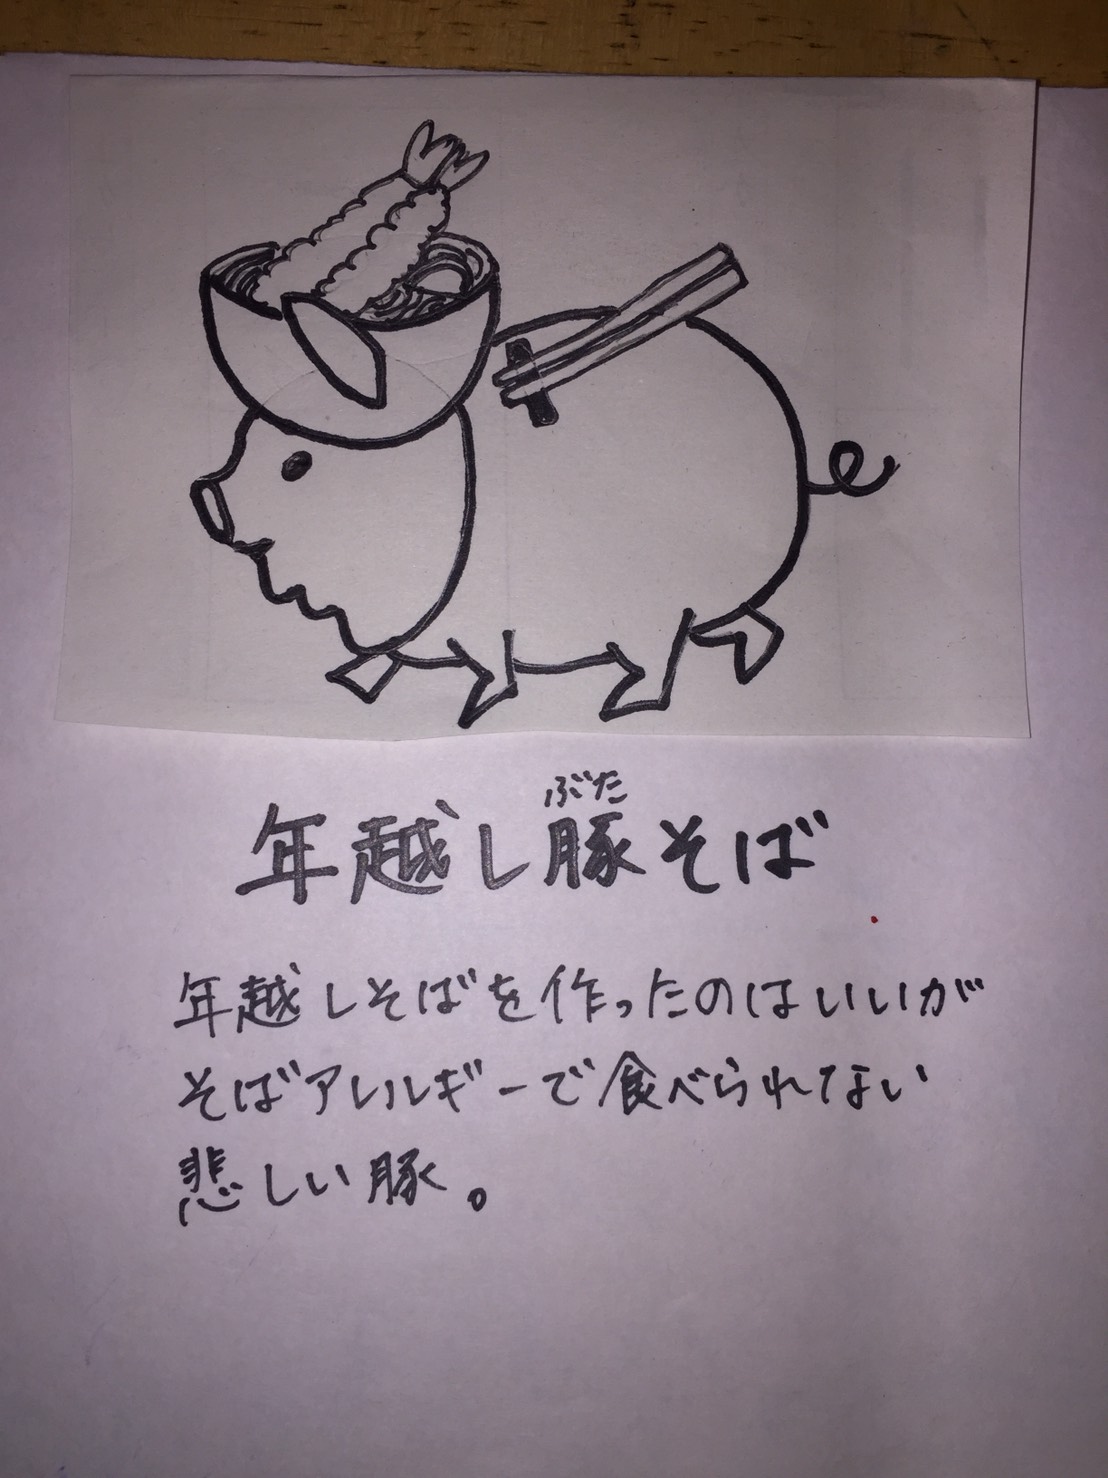 年越し豚そば
ぶた
年越しそばを作ったのはいいが
そばアレルギーで食べられない
悲しい豚。